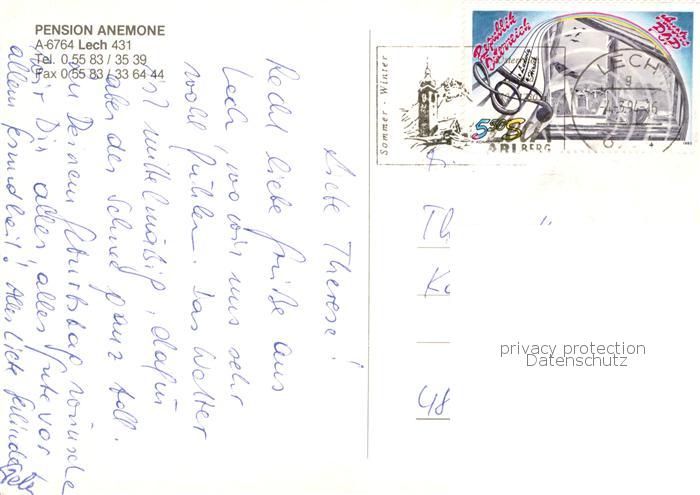 PENSION ANEMONE
A-6764 Lech 431
Tel. 0 55 83 / 35 39
Fax 0 55 83 / 33 64 44
Liebe Therese!
Recht liebe Grüße aus
Lech, wo wir uns sehr
wohl fühlen. Das Wetter
ist mittelmäßig, dafür
aber der Schnee ganz toll.
Zu Deinem Geburtstag wünsche
wir Dir alles, alles Gute vor
allem Gesundheit! Alles Liebe
Sommer - Winter
ARLBERG
LECH
Republik
Österreich
5.50 S
Th
Ka
48
privacy protection
Datenschutz